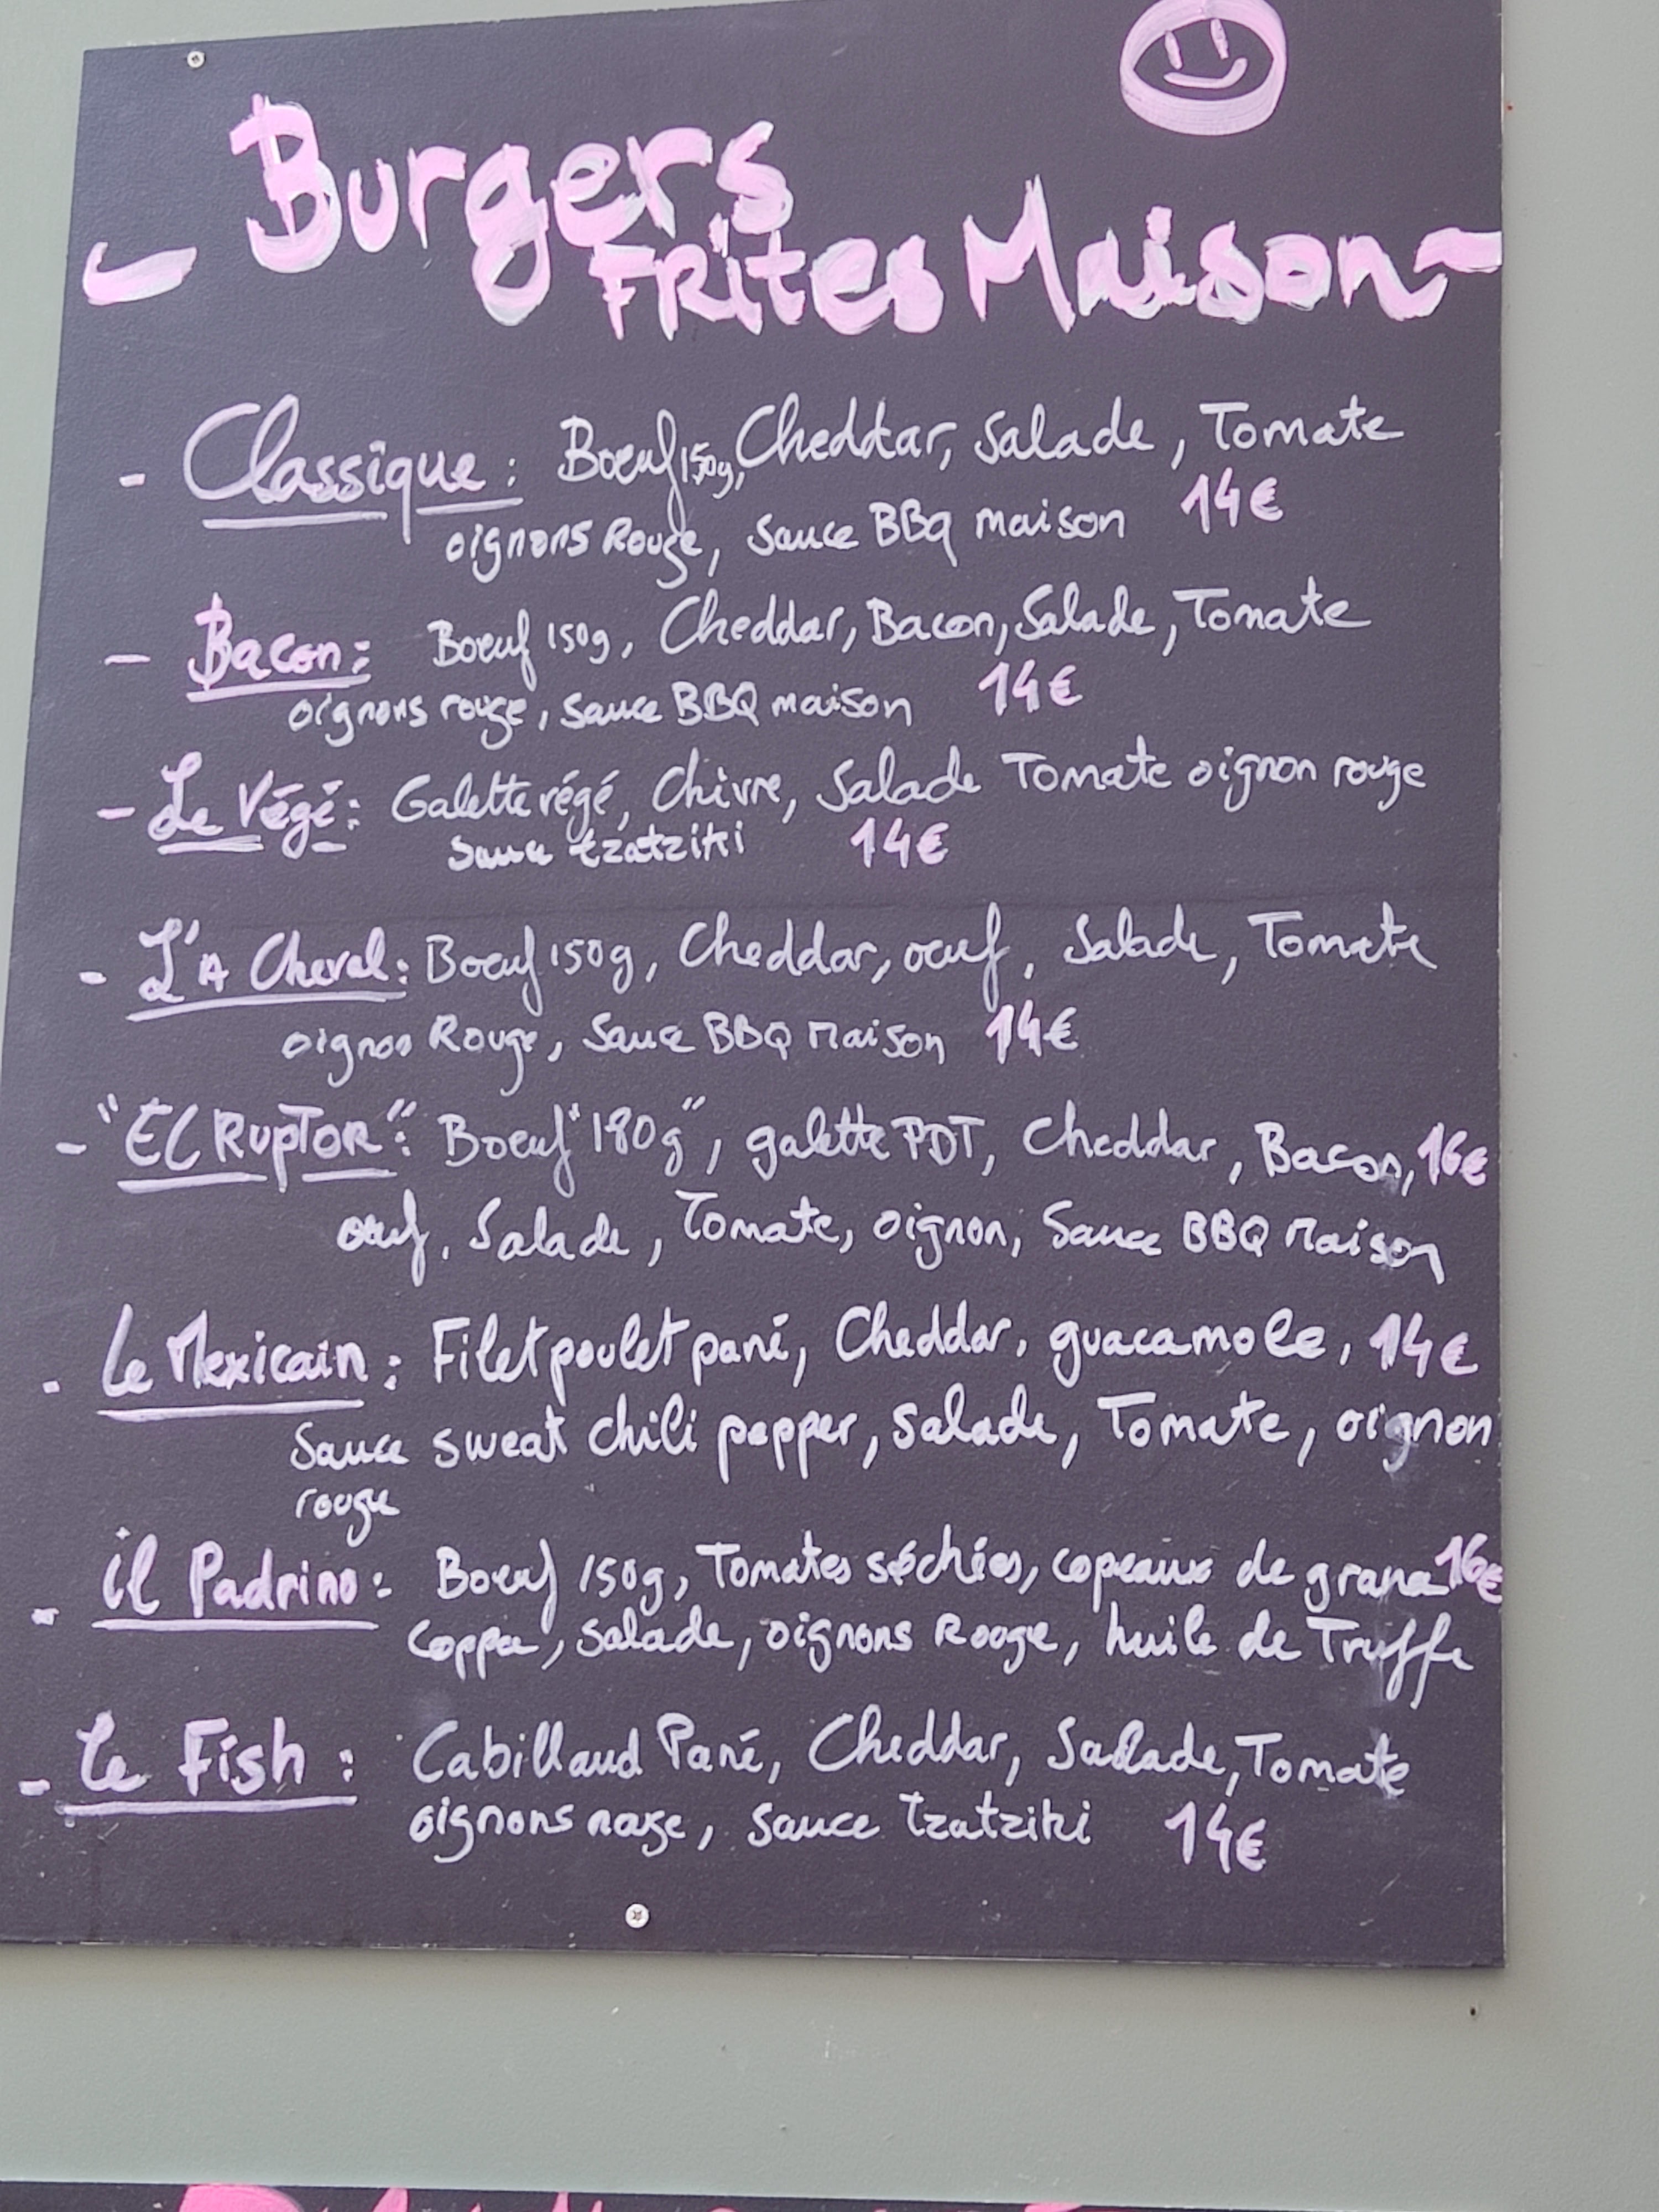 Burgers
Frites Maison
- Classique : Boeuf 150g, Cheddar, Salade, Tomate
oignons Rouge, Sauce BBQ maison 14€
- Bacon : Boeuf 150g, Cheddar, Bacon, Salade, Tomate
oignons rouge, Sauce BBQ maison 14€
- Le Végé : Galette végé, Chèvre, Salade Tomate oignon rouge
Sauce tzatziki 14€
- L'A Cheval : Boeuf 150g, Cheddar, oeuf, Salade, Tomate
oignon Rouge, Sauce BBQ Maison 14€
- "ECRUPTOR" : Boeuf "180g", galette PDT, Cheddar, Bacon, 16€
oeuf, Salade, Tomate, oignon, Sauce BBQ Maison
- Le Mexicain : Filet poulet pané, Cheddar, guacamole, 14€
Sauce sweat chili pepper, Salade, Tomate, oignon
rouge
- il Padrino : Boeuf 150g, Tomates séchées, copeaux de grana 16€
Coppa, Salade, oignons Rouge, huile de Truffe
- Le Fish : Cabillaud Pané, Cheddar, Salade, Tomate
oignons rouge, Sauce tzatziki 14€